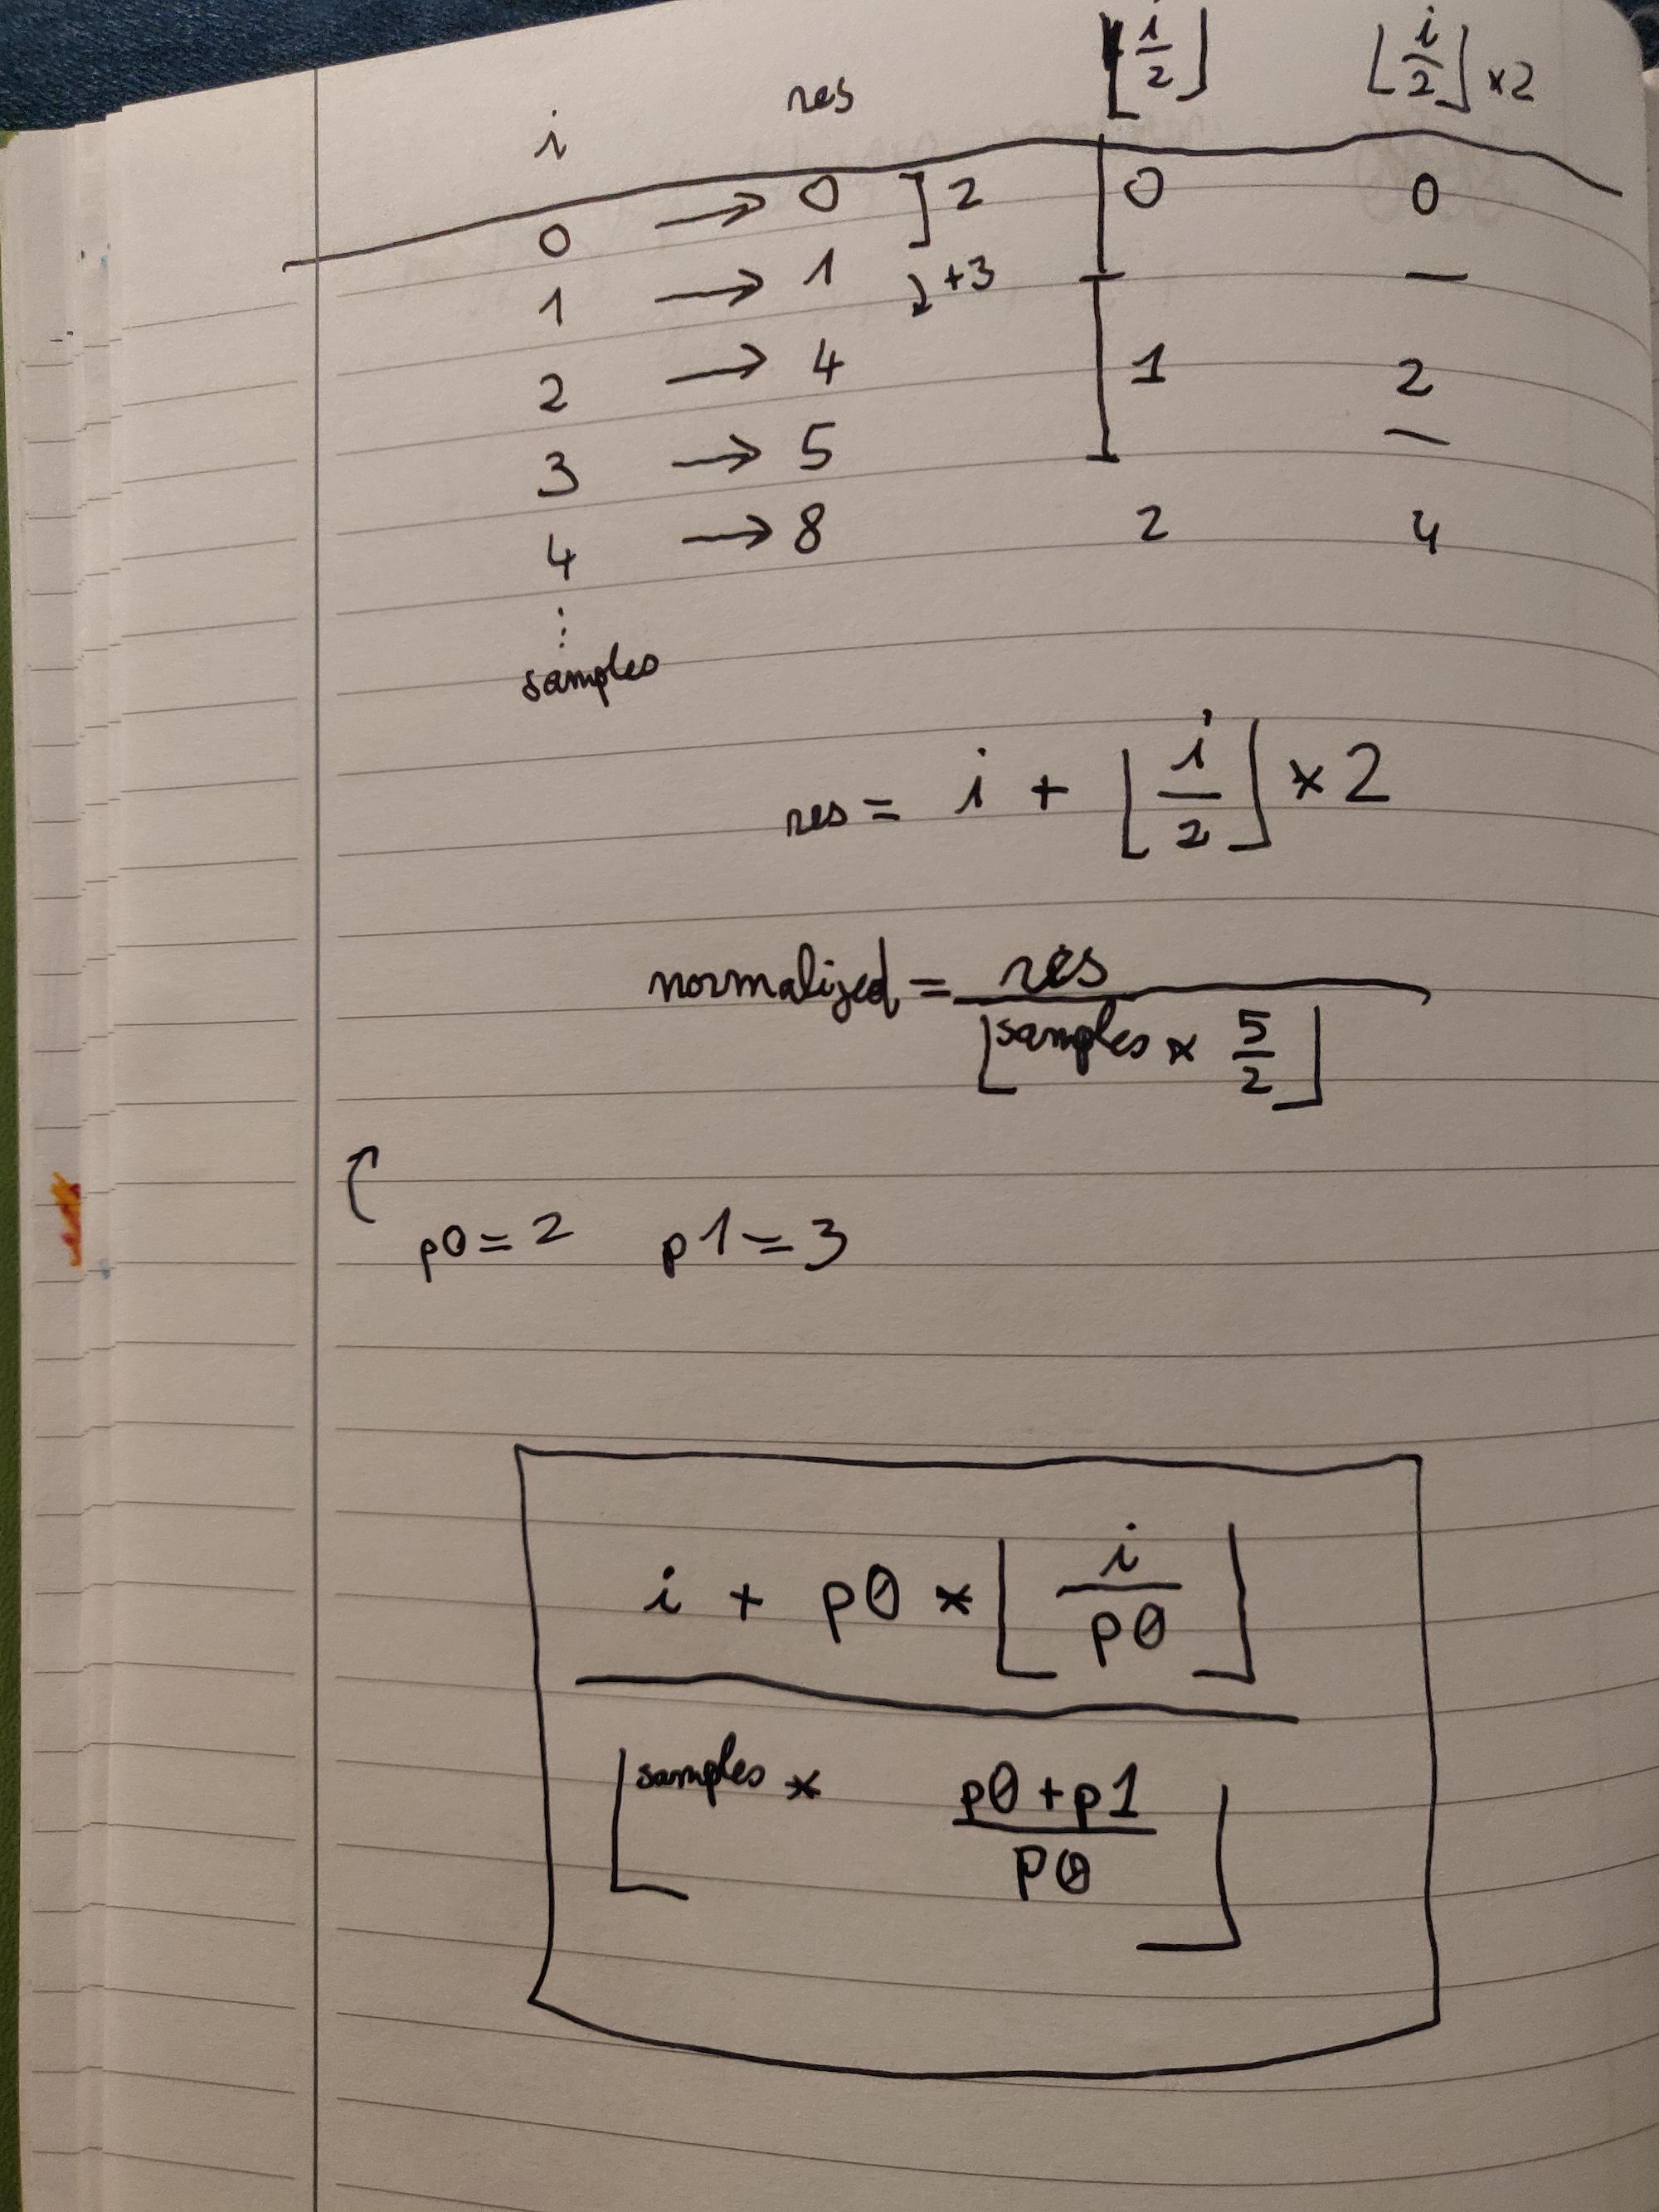 i res ⌊i/2⌋ ⌊i/2⌋ × 2
0 → 0 ] 2 0 0
1 → 1 ⤸ +3
2 → 4 1 2
3 → 5
4 → 8 2 4
⋮
samples
res = i + ⌊i/2⌋ × 2
normalized = res / ⌊samples × 5/2⌋
p0 = 2 p1 = 3
i + p0 × ⌊i/p0⌋
⌊samples × (p0 + p1)/p0⌋